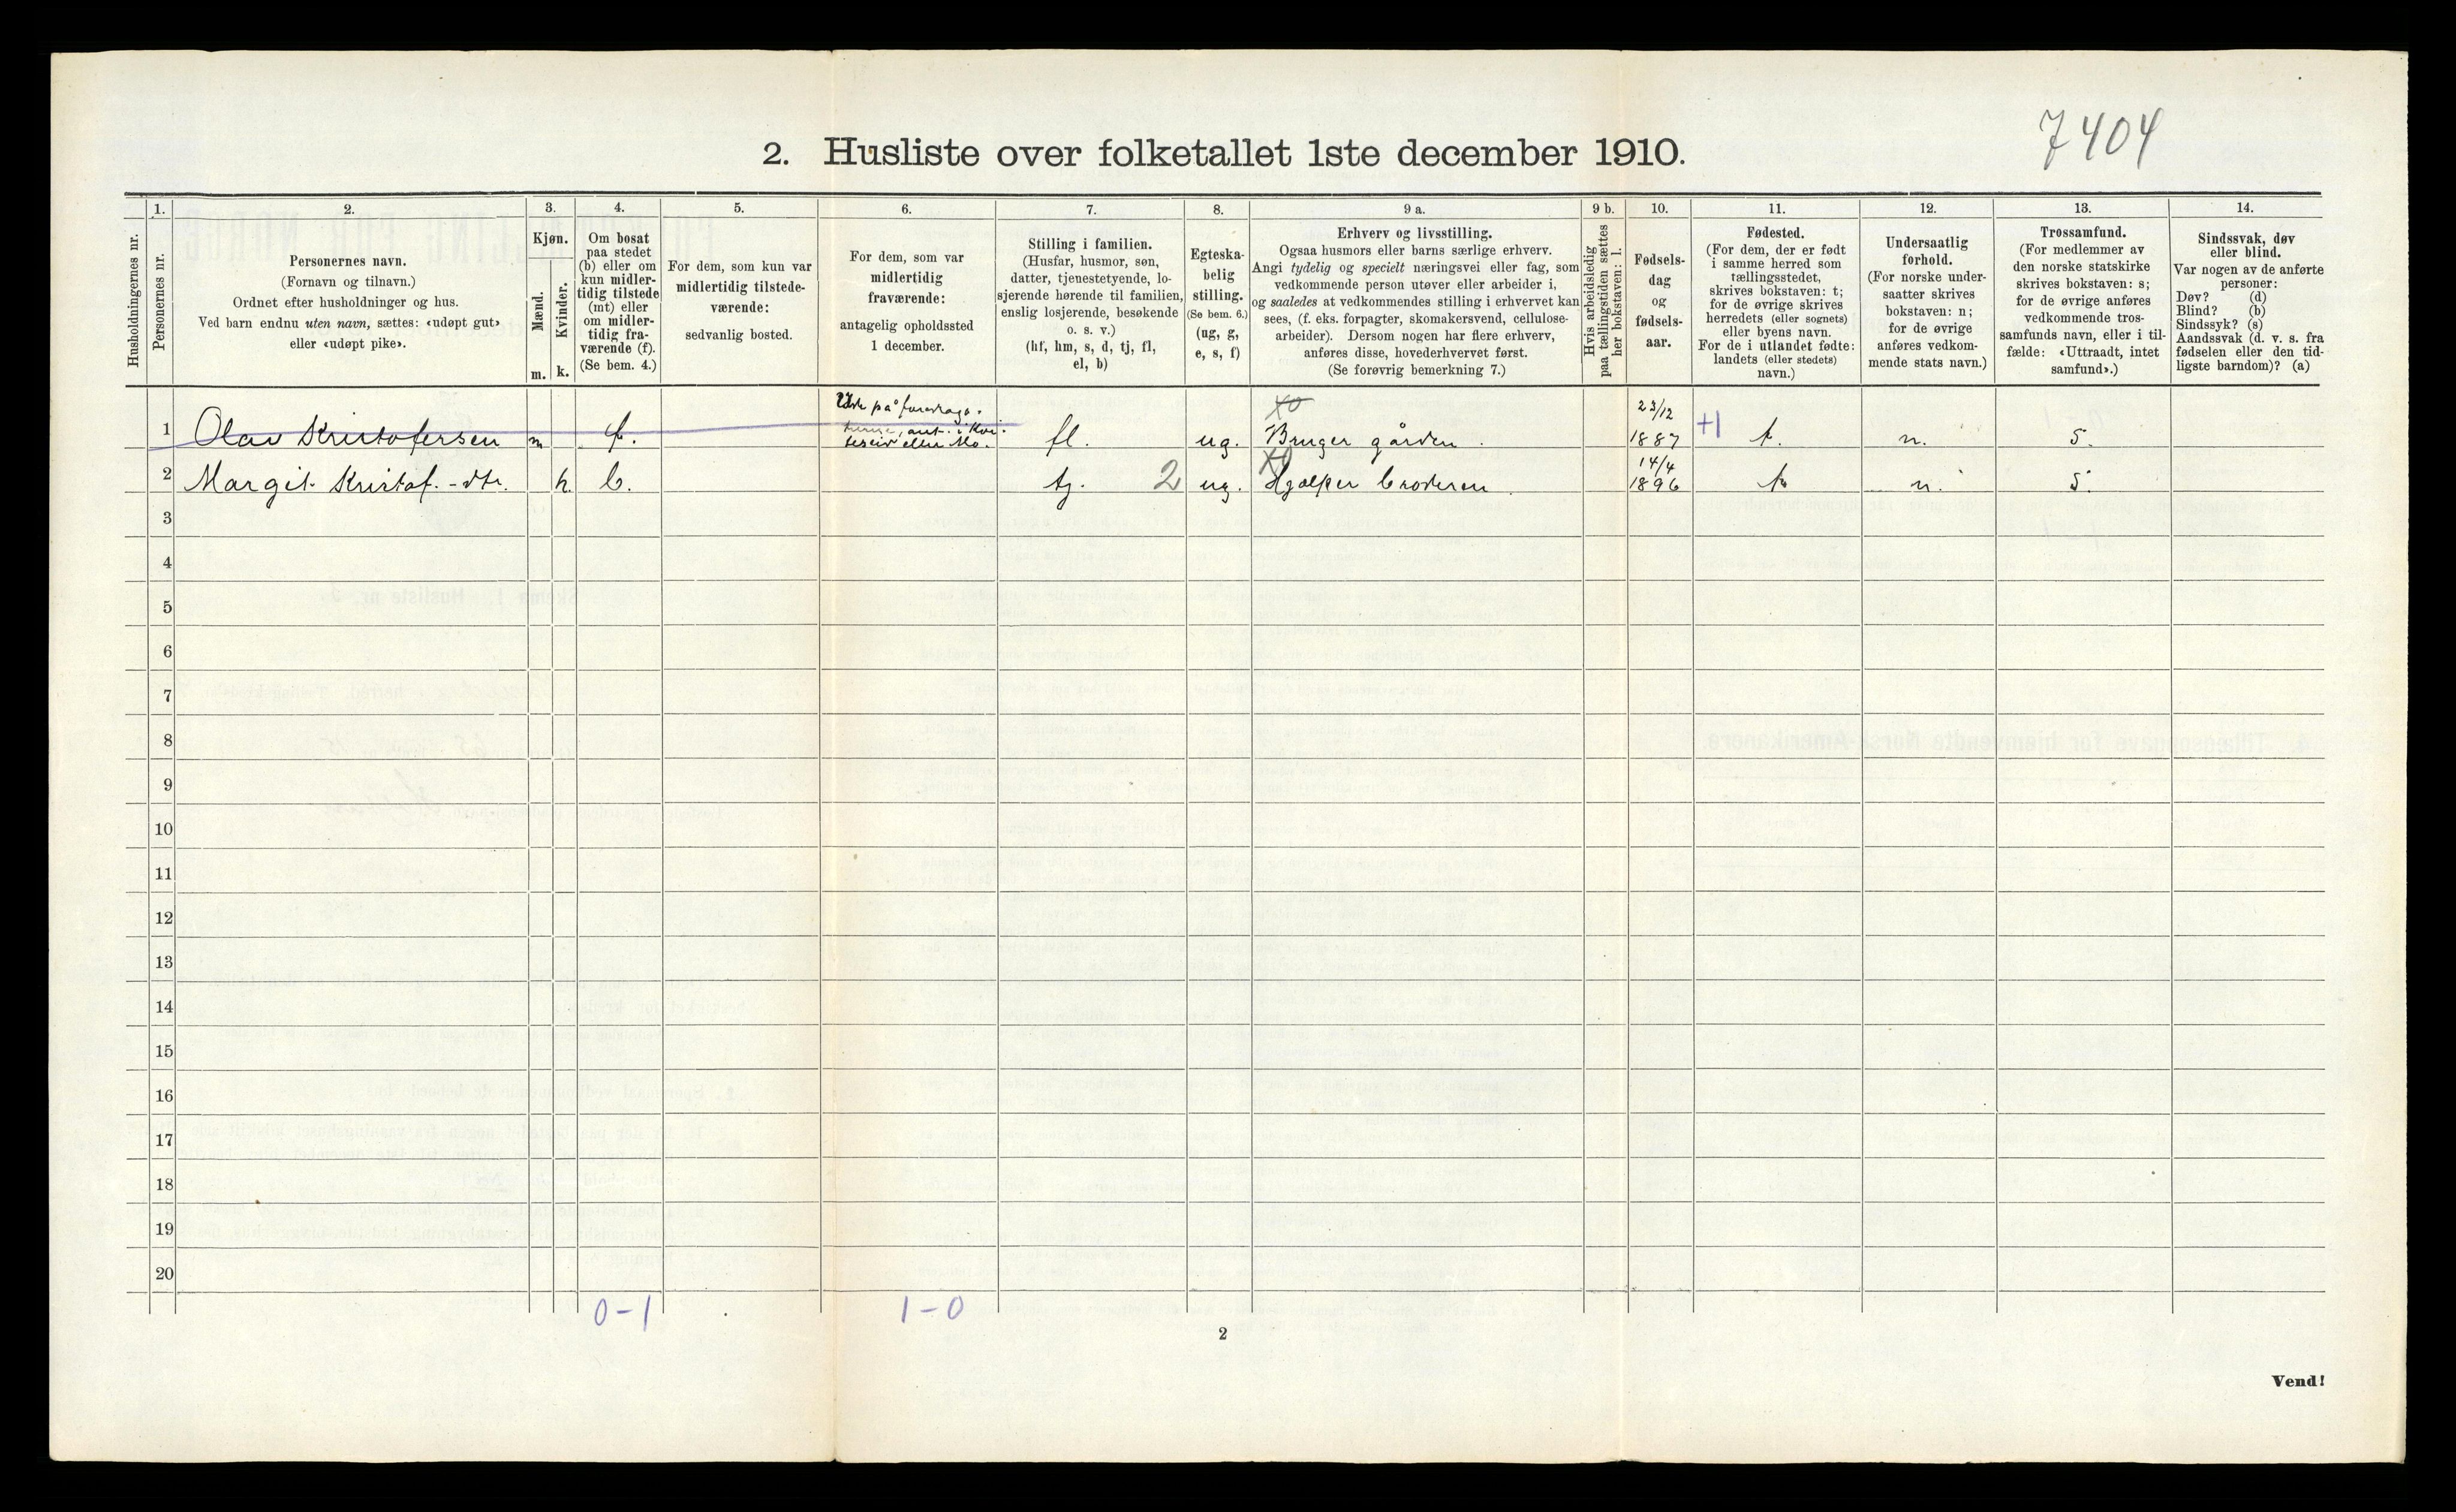 7404
2. Husliste over folketallet 1ste december 1910.
Husholdningernes nr.
1.
Personernes nr.
2.
Personernes navn.
(Fornavn og tilnavn.)
Ordnet efter husholdninger og hus.
Ved barn endnu uten navn, sættes: «udøpt gut»
eller «udøpt pike».
3.
Kjøn.
Mænd.
Kvinder.
m. k.
4.
Om bosat
paa stedet
(b) eller om
kun midler-
tidig tilstede
(mt) eller
om midler-
tidig fra-
værende (f).
(Se bem. 4.)
5.
For dem, som kun var
midlertidig tilstede-
værende:
sedvanlig bosted.
6.
For dem, som var
midlertidig
fraværende:
antagelig opholdssted
1 december.
7.
Stilling i familien.
(Husfar, husmor, søn,
datter, tjenestetyende, lo-
sjerende hørende til familien,
enslig losjerende, besøkende
o. s. v.)
(hf, hm, s, d, tj, fl,
el, b)
8.
Egteska-
belig
stilling.
(Se bem. 6.)
(ug, g,
e, s, f)
9 a.
Erhverv og livsstilling.
Ogsaa husmors eller barns særlige erhverv.
Angi tydelig og specielt næringsvei eller fag, som
vedkommende person utøver eller arbeider i,
og saaledes at vedkommendes stilling i erhvervet kan
sees, (f. eks. forpagter, skomakersvend, cellulose-
arbeider). Dersom nogen har flere erhverv,
anføres disse, hovederhvervet først.
(Se forøvrig bemerkning 7.)
9 b.
Hvis arbeidsledig
paa tællingstiden sættes
her bokstaven: l.
10.
Fødsels-
dag
og
fødsels-
aar.
11.
Fødested.
(For dem, der er født
i samme herred som
tællingsstedet,
skrives bokstaven: t;
for de øvrige skrives
herredets (eller sognets)
eller byens navn.
For de i utlandet fødte:
landets (eller stedets)
navn.)
12.
Undersaatlig
forhold.
(For norske under-
saatter skrives
bokstaven: n;
for de øvrige
anføres vedkom-
mende stats navn.)
13.
Trossamfund.
(For medlemmer av
den norske statskirke
skrives bokstaven: s;
for de øvrige anføres
vedkommende tros-
samfunds navn, eller i til-
fælde: «Uttraadt, intet
samfund».)
14.
Sindssvak, døv
eller blind.
Var nogen av de anførte
personer:
Døv? (d)
Blind? (b)
Sindssyk? (s)
Aandssvak (d. v. s. fra
fødselen eller den tid-
ligste barndom)? (a)
1 Olav Kristofersen m f. Ute på foredrags- turne, ant. i Kvi- teseid eller Mo. fl. ug. Xo Bruger gården. 23/12 1887 +1 t. n. s.
2 Margit Kristof.-dtr. k. b. tj. 2 ug. Hjælper broderen. 14/4 1896 t. n. s.
3
4
5
6
7
8
9
10
11
12
13
14
15
16
17
18
19
20
0-1 1-0
2
Vend!